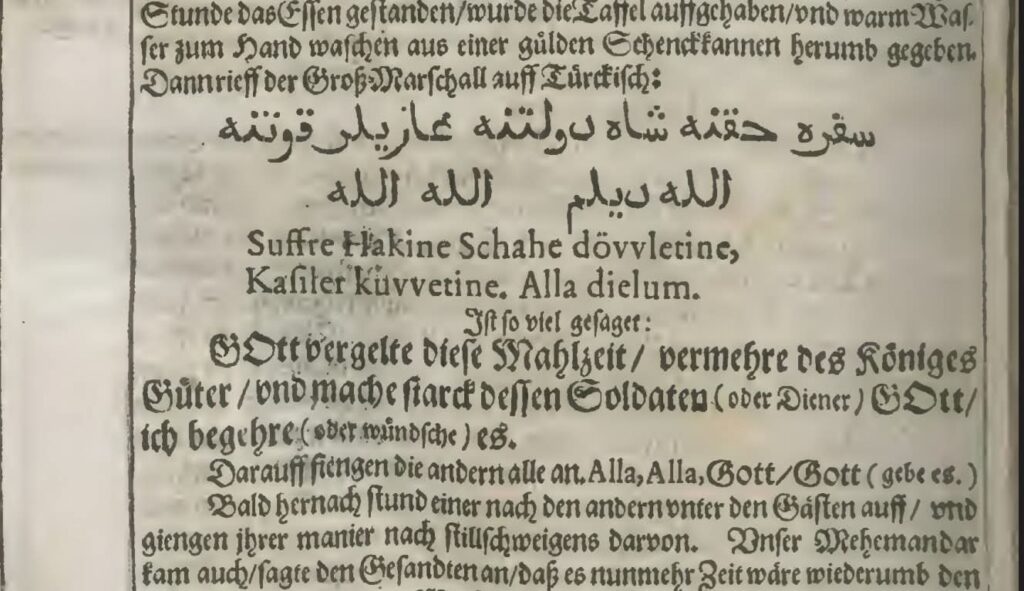 Stunde das Essen gestanden/wurde die Taffel auffgehaben/vnd warm Was⸗
ser zum Hand waschen aus einer gülden Schenckkannen herumb gegeben.
Dann rieff der Groß⸗Marschall auff Türckisch:
سفره حقنه شاه دولتنه غازيلر قوتنه
الله ديلم الله الله
Suffre Hakine Schahe dövvletine,
Kasiler küvvetine. Alla dielum.
Ist so viel gesaget:
GOtt vergelte diese Mahlzeit/ vermehre des Königes
Güter/vnd mache starck dessen Soldaten (oder Diener) GOtt/
ich begehre (oder wündsche) es.
Darauff fiengen die andern alle an, Alla, Alla, Gott/Gott (gebe es.)
Bald hernach stund einer nach den andern vnter den Gästen auff/ vnd
giengen jhrer manier nach stillschweigens darvon. Vnser Mehemandar
kam auch/sagte den Gesandten an/daß es nunmehr Zeit wäre wiederumb den